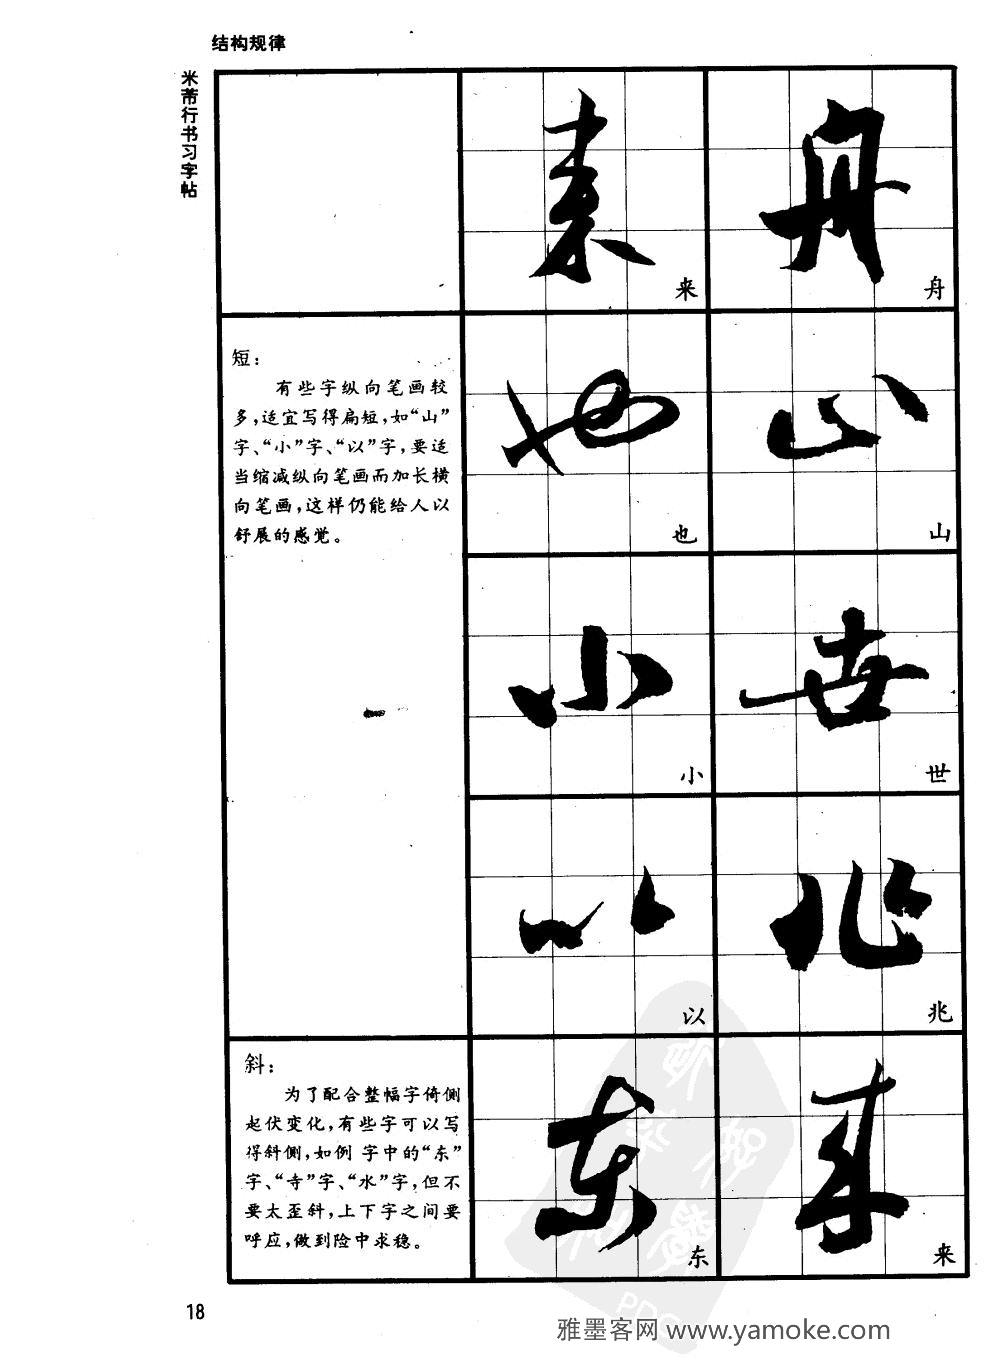 结构规律
米芾行书习字帖
来
舟
来
舟
短：
有些字纵向笔画较
多，适宜写得扁短，如“山”
字、“小”字、“以”字，要适
当缩减纵向笔画而加长横
向笔画，这样仍能给人以
舒展的感觉。
也
山
也
山
小
世
小
世
以
兆
以
兆
斜：
为了配合整幅字倚侧
起伏变化，有些字可以写
得斜侧，如例 字中的“东”
字、“寺”字、“水”字，但不
要太歪斜，上下字之间要
呼应，做到险中求稳。
东
来
东
来
18
PDG
雅墨客网 www.yamoke.com